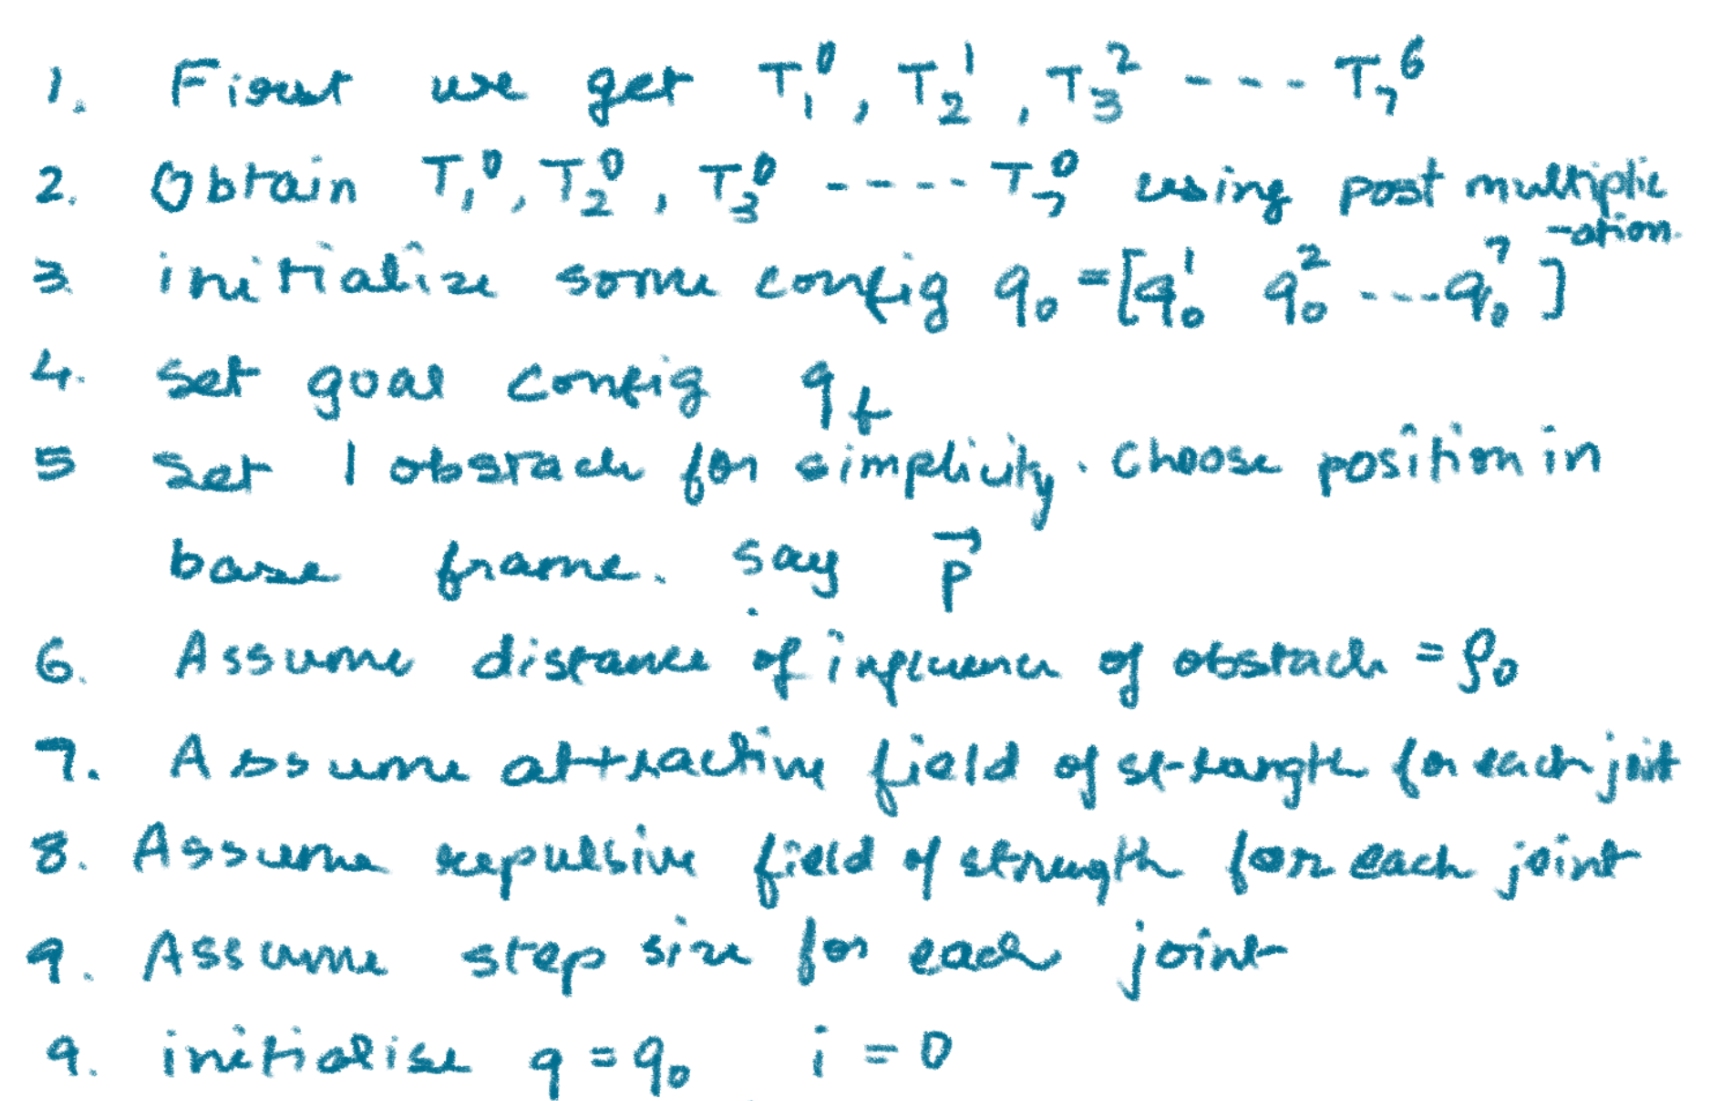 1. First we get T₁⁰, T₂¹, T₃² ---- T₇⁶
2. Obtain T₁⁰, T₂⁰, T₃⁰ ---- T₇⁰ using post multiplic
-ation.
3. initialize some config q₀ = [q₀¹ q₀² ... q₀⁷]
4. set goal config q_f
5 set 1 obstacle for simplicity. Choose position in
base frame. say p⃗
6. Assume distance of influence of obstacle = ρ₀
7. Assume attractive field of strength for each joint
8. Assume repulsive field of strength for each joint
9. Assume step size for each joint
9. initialise q = q₀ i = 0